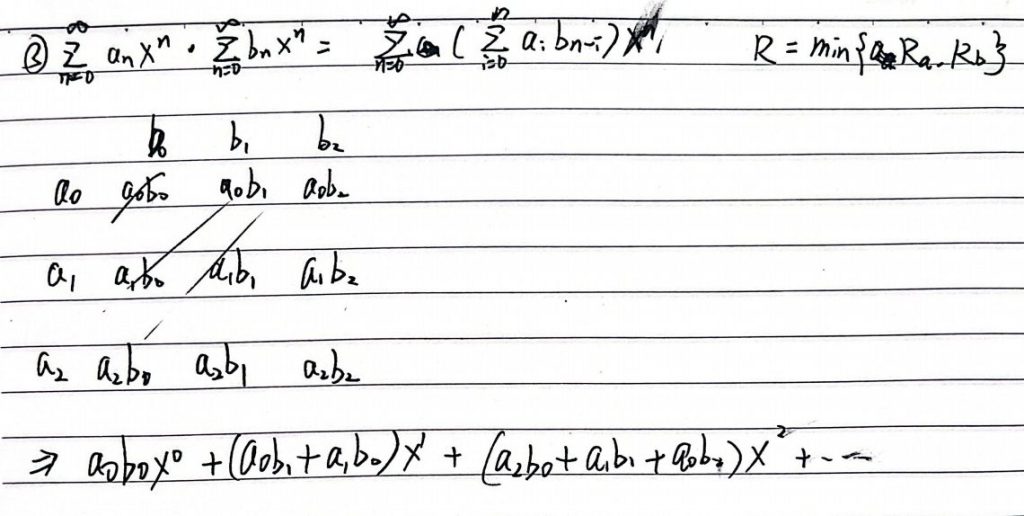 ③ ∑_{n=0}^{∞} aₙxⁿ · ∑_{n=0}^{∞} bₙxⁿ = ∑_{n=0}^{∞} ( ∑_{i=0}^{n} aᵢ bₙ₋ᵢ ) xⁿ, R = min{Ra, Rb}
b₀ b₁ b₂
a₀ a₀b₀ a₀b₁ a₀b₂
a₁ a₁b₀ a₁b₁ a₁b₂
a₂ a₂b₀ a₂b₁ a₂b₂
⇒ a₀b₀x⁰ + (a₀b₁ + a₁b₀)x¹ + (a₂b₀ + a₁b₁ + a₀b₂)x² + ...